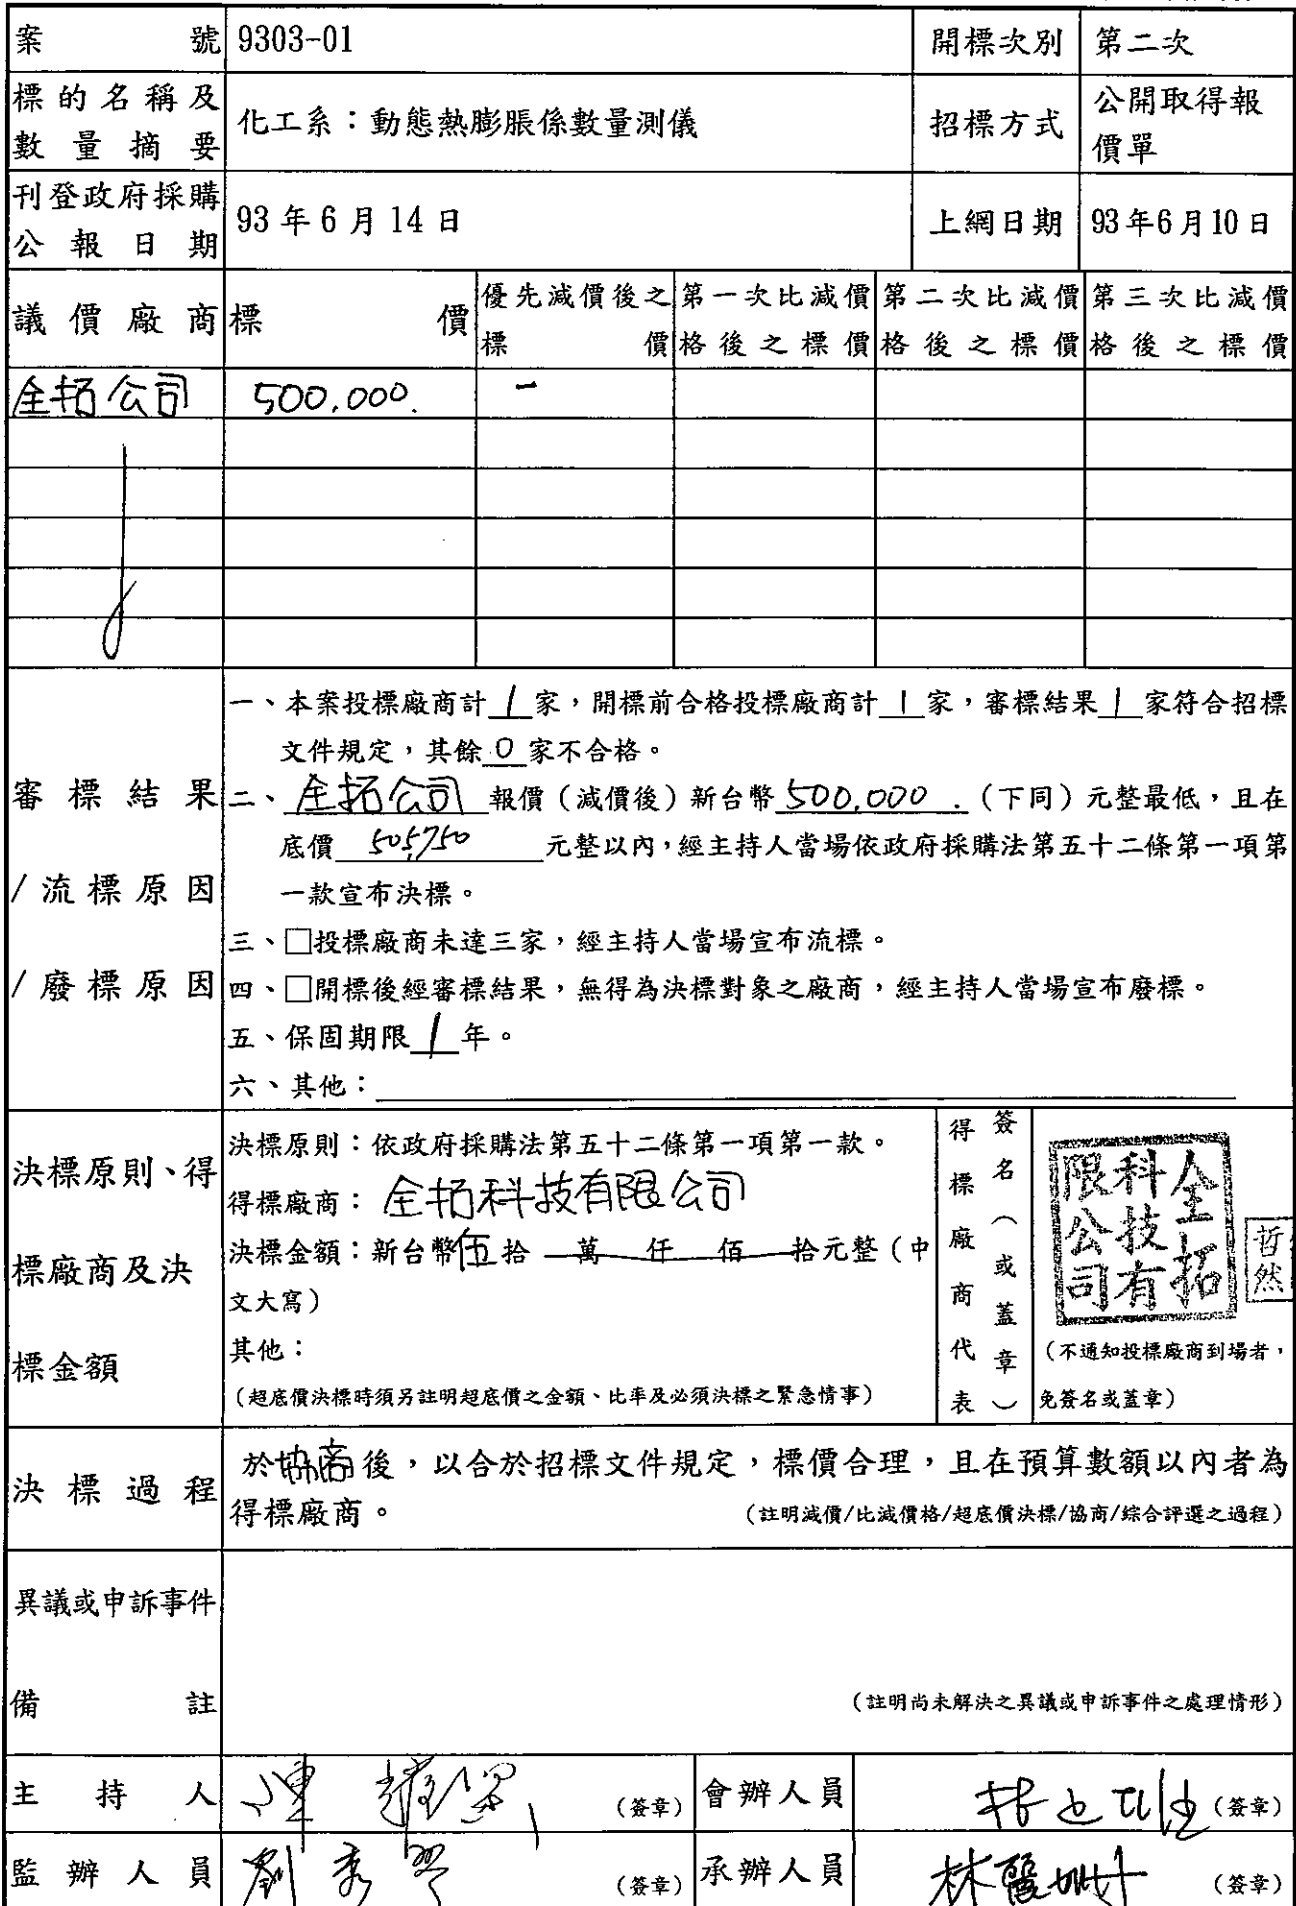 案號 9303-01 開標次別 第二次
標的名稱及數量摘要 化工系：動態熱膨脹係數量測儀 招標方式 公開取得報價單
刊登政府採購公報日期 93年6月14日 上網日期 93年6月10日
議價廠商 標價 優先減價後之標價 第一次比減價格後之標價 第二次比減價格後之標價 第三次比減價格後之標價
全拓公司 500,000. -
審標結果/流標原因/廢標原因
一、本案投標廠商計1家，開標前合格投標廠商計1家，審標結果1家符合招標
文件規定，其餘0家不合格。
二、全拓公司報價（減價後）新台幣500,000.（下同）元整最低，且在
底價505,750元整以內，經主持人當場依政府採購法第五十二條第一項第
一款宣布決標。
三、□投標廠商未達三家，經主持人當場宣布流標。
四、□開標後經審標結果，無得為決標對象之廠商，經主持人當場宣布廢標。
五、保固期限1年。
六、其他：
決標原則、得標廠商及決標金額
決標原則：依政府採購法第五十二條第一項第一款。
得標廠商：全拓科技有限公司
決標金額：新台幣伍拾萬仟佰拾元整（中
文大寫）
其他：
（超底價決標時須另註明超底價之金額、比率及必須決標之緊急情事）
得標廠商代表
簽名（或蓋章）
全拓科技有限公司
哲然
（不通知投標廠商到場者，
免簽名或蓋章）
決標過程
於協商後，以合於招標文件規定，標價合理，且在預算數額以內者為
得標廠商。
（註明減價/比減價格/超底價決標/協商/綜合評選之過程）
異議或申訴事件
備註
（註明尚未解決之異議或申訴事件之處理情形）
主持人 陳 （簽章） 會辦人員 （簽章）
監辦人員 劉秀琴 （簽章） 承辦人員 林麗姍 （簽章）